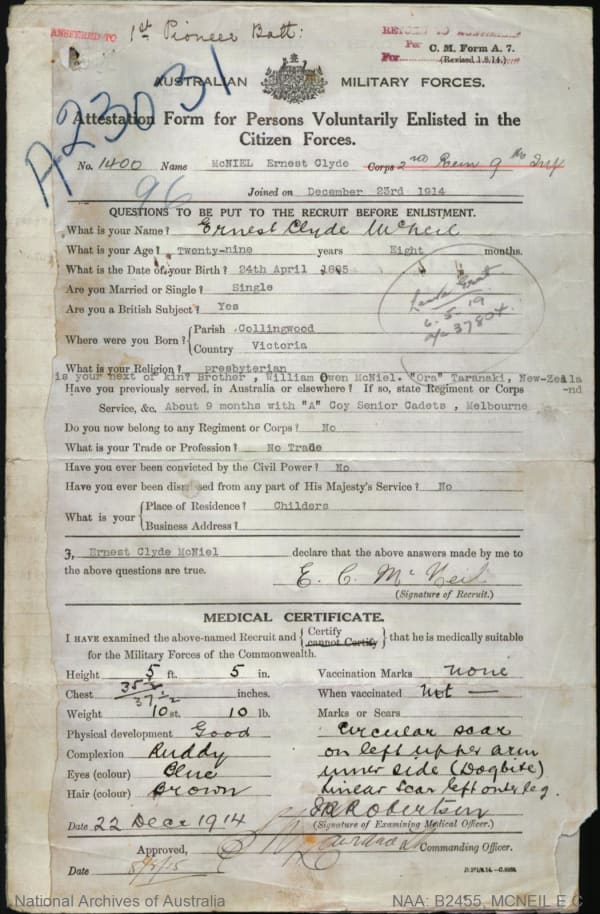 1st Pioneer Batt:
ANSFERRED TO
RETURNED TO AUSTRALIA
Per
For
C. M. Form A. 7.
(Revised 1.8.14.)
A23031
AUSTRALIAN MILITARY FORCES.
Attestation Form for Persons Voluntarily Enlisted in the
Citizen Forces.
No. 1400 Name McNIEL Ernest Clyde Corps 2nd Rein 9th Inf
96
Joined on December 23rd 1914
QUESTIONS TO BE PUT TO THE RECRUIT BEFORE ENLISTMENT.
What is your Name? Ernest Clyde McNeil
What is your Age? Twenty-nine years Eight months.
What is the Date of your Birth? 24th April 1885
Are you Married or Single? Single
Are you a British Subject? Yes
6.5.19
Where were you Born? { Parish Collingwood
Country Victoria
What is your Religion? presbyterian
is your next of kin? Brother, William Owen McNiel. "Ora" Taranaki, New-Zeala
-nd
Have you previously served, in Australia or elsewhere? If so, state Regiment or Corps
Service, &c. About 9 months with "A" Coy Senior Cadets, Melbourne
Do you now belong to any Regiment or Corps? No
What is your Trade or Profession? No Trade
Have you ever been convicted by the Civil Power? No
Have you ever been dismissed from any part of His Majesty's Service? No
What is your { Place of Residence? Childers
Business Address?
3, Ernest Clyde McNiel declare that the above answers made by me to
the above questions are true.
E. C. McNeil
(Signature of Recruit.)
MEDICAL CERTIFICATE.
I HAVE examined the above-named Recruit and { Certify
cannot Certify } that he is medically suitable
for the Military Forces of the Commonwealth.
Height 5 ft. 5 in. Vaccination Marks none
Chest 35½ 37½ inches. When vaccinated not —
Weight 10 st. 10 lb. Marks or Scars
Physical development Good circular scar
Complexion Ruddy on left upper arm
Eyes (colour) Blue inner side (Dogbite)
Hair (colour) Brown Linear scar left outer leg.
Date 22 Dec 1914 Robertson
(Signature of Examining Medical Officer.)
Approved, Commanding Officer.
Date
D.271/8.14.—C.9359.
National Archives of Australia NAA: B2455, MCNEIL E C